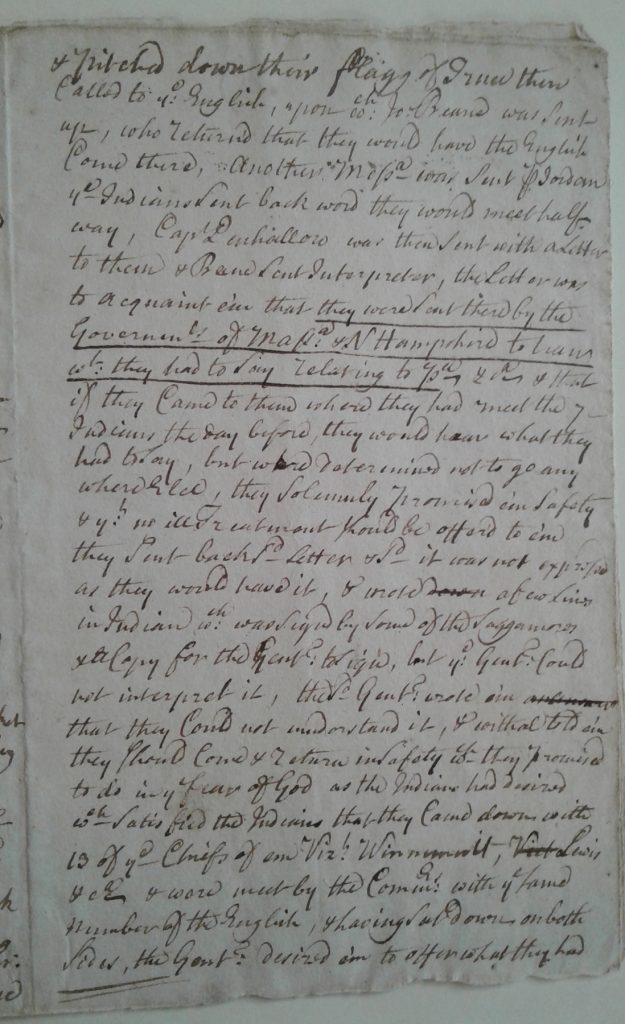 & Pitched down their flagg of Truce then
Called to ye English, upon wch Jo Beane was sent
up, who returned that they would have the English
Come there, Another Messa was sent Jordan
ye Indians sent back word they would meet half
way, Capt Penhallow was then sent with a Letter
to them & Beane sent Interpreter, the Letter was
to acquaint em that they were sent there by the
Governmts of Massa & N Hampshire to hear
wt they had to say relating to & that
if they Came to them where they had meet the
Indians the day before, they would hear what they
had to say, but were determined not to go any
where Else, they solemnly promised em safety
& yt no ill Treatment should be offerd to em
they sent back sd Letter & sd it was not expresed
as they would have it, & wrote down a few Lines
in Indian wch was signd by some of the Saggamores
& a Copy for the Gentn to sign, but ye Gentn Could
not interpret it, the sd Gentn wrote em
that they Could not understand it, & withal told em
they should Come & return in safety wch they promised
to do in ye fear of God as the Indians had desired
wch satisfied the Indians that they Came down with
13 of ye Chiefs of em Vizt Winnmuitt, Vizt Lewis
& were meet by the Commrs with ye same
number of the English, & having sat down on both
sides, the Gentn desired em to offer what they had